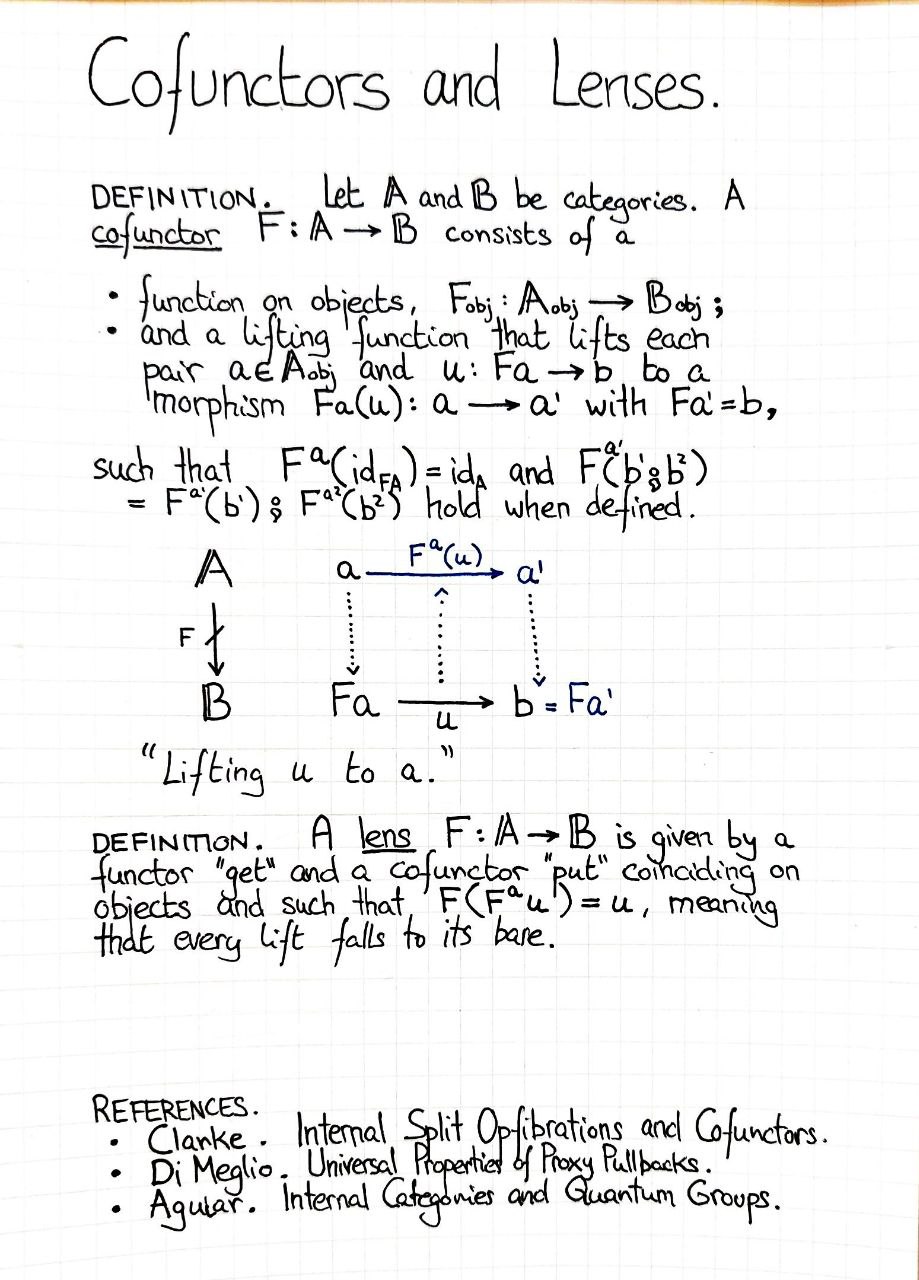 Cofunctors and Lenses.
DEFINITION. Let 𝔸 and 𝔹 be categories. A
cofunctor F : 𝔸 → 𝔹 consists of a
• function on objects, Fobj : 𝔸obj → 𝔹obj ;
• and a lifting function that lifts each
pair a ∈ 𝔸obj and u : Fa → b to a
morphism Fa(u) : a → a' with Fa' = b,
such that Fᵃ(id_FA) = id_A and Fᵃ'(b¹⨟b²)
= Fᵃ'(b¹) ⨟ Fᵃ²(b²) hold when defined.
𝔸 a Fᵃ(u) a'
F
𝔹 Fa u b = Fa'
"Lifting u to a."
DEFINITION. A lens F : 𝔸 → 𝔹 is given by a
functor "get" and a cofunctor "put" coinciding on
objects and such that F(Fᵃu) = u, meaning
that every lift falls to its base.
REFERENCES.
• Clarke. Internal Split Opfibrations and Cofunctors.
• Di Meglio. Universal Properties of Proxy Pullbacks.
• Aguiar. Internal Categories and Quantum Groups.